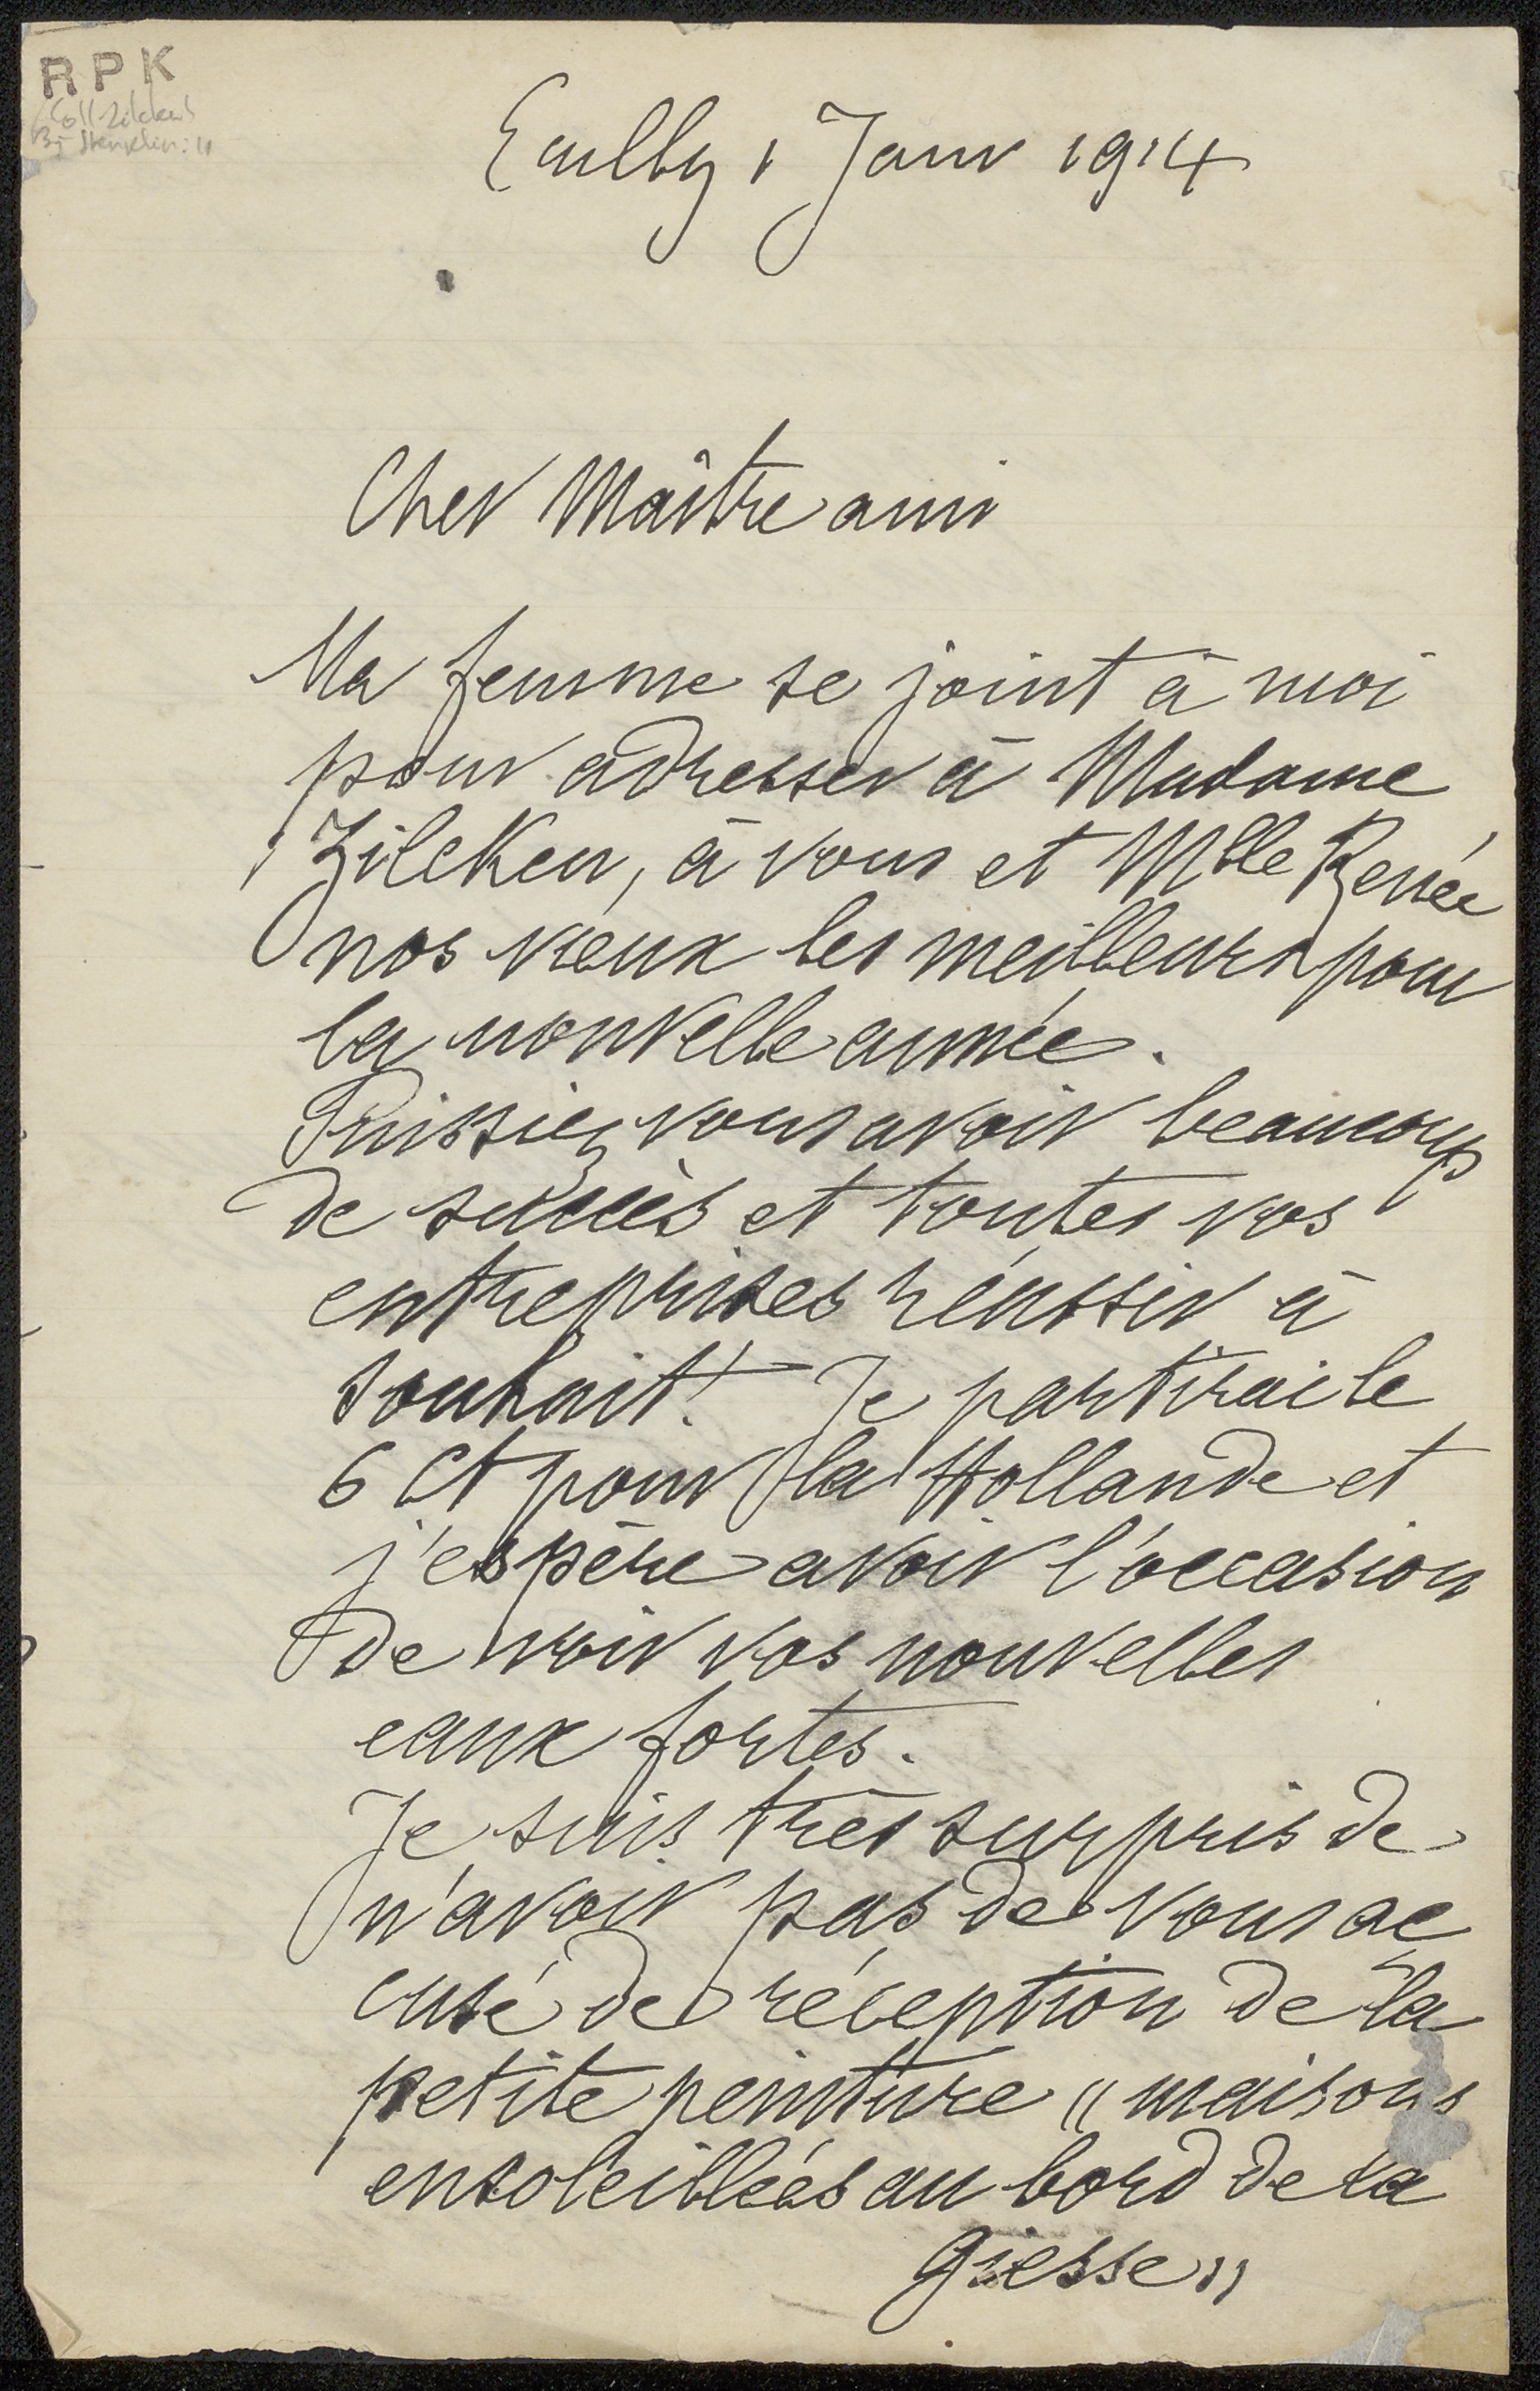 RPK
Ecully 1 Janv 1914
Cher Maître ami
Ma femme se joint à moi
pour adresser à Madame
Zilcken, à vous et Mlle Renée
nos vœux les meilleurs pour
la nouvelle année.
Puissiez vous avoir beaucoup
de succès et toutes vos
entreprises réussir à
souhait! Je partirai le
6 Ct pour la Hollande et
j'espère avoir l'occasion
de voir vos nouvelles
eaux fortes.
Je suis très surpris de
n'avoir pas de vous ac
cusé de réception de la
petite peinture „maisons
ensoleillées au bord de la
Giesse"